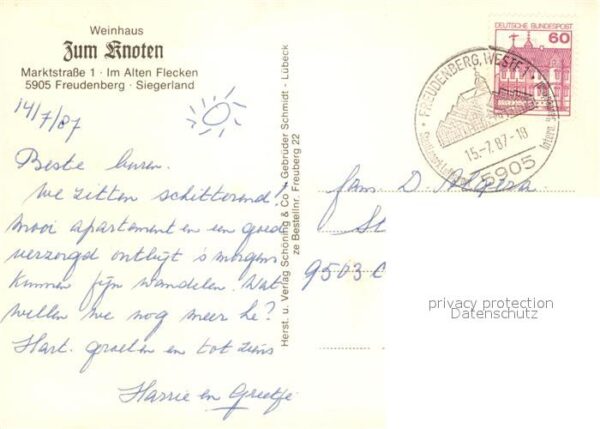 Weinhaus
Zum Knoten
Marktstraße 1 · Im Alten Flecken
5905 Freudenberg · Siegerland
14/7/87
Beste buren.
We zitten schitterend!
Mooi apartement en een goed
verzorgd ontbijt 's morgens
Kunnen fijn wandelen. Wat
willen we nog meer hè?
Hart. groeten en tot ziens
Harrie en Greetje
Herst. u. Verlag Schöning & Co + Gebrüder Schmidt - Lübeck
ze Bestellnr. Freuberg 22
DEUTSCHE BUNDESPOST
60
FREUDENBERG, WESTF 1
15.-7.87-18
5905
fam. D.
St
9503 C
privacy protection
Datenschutz